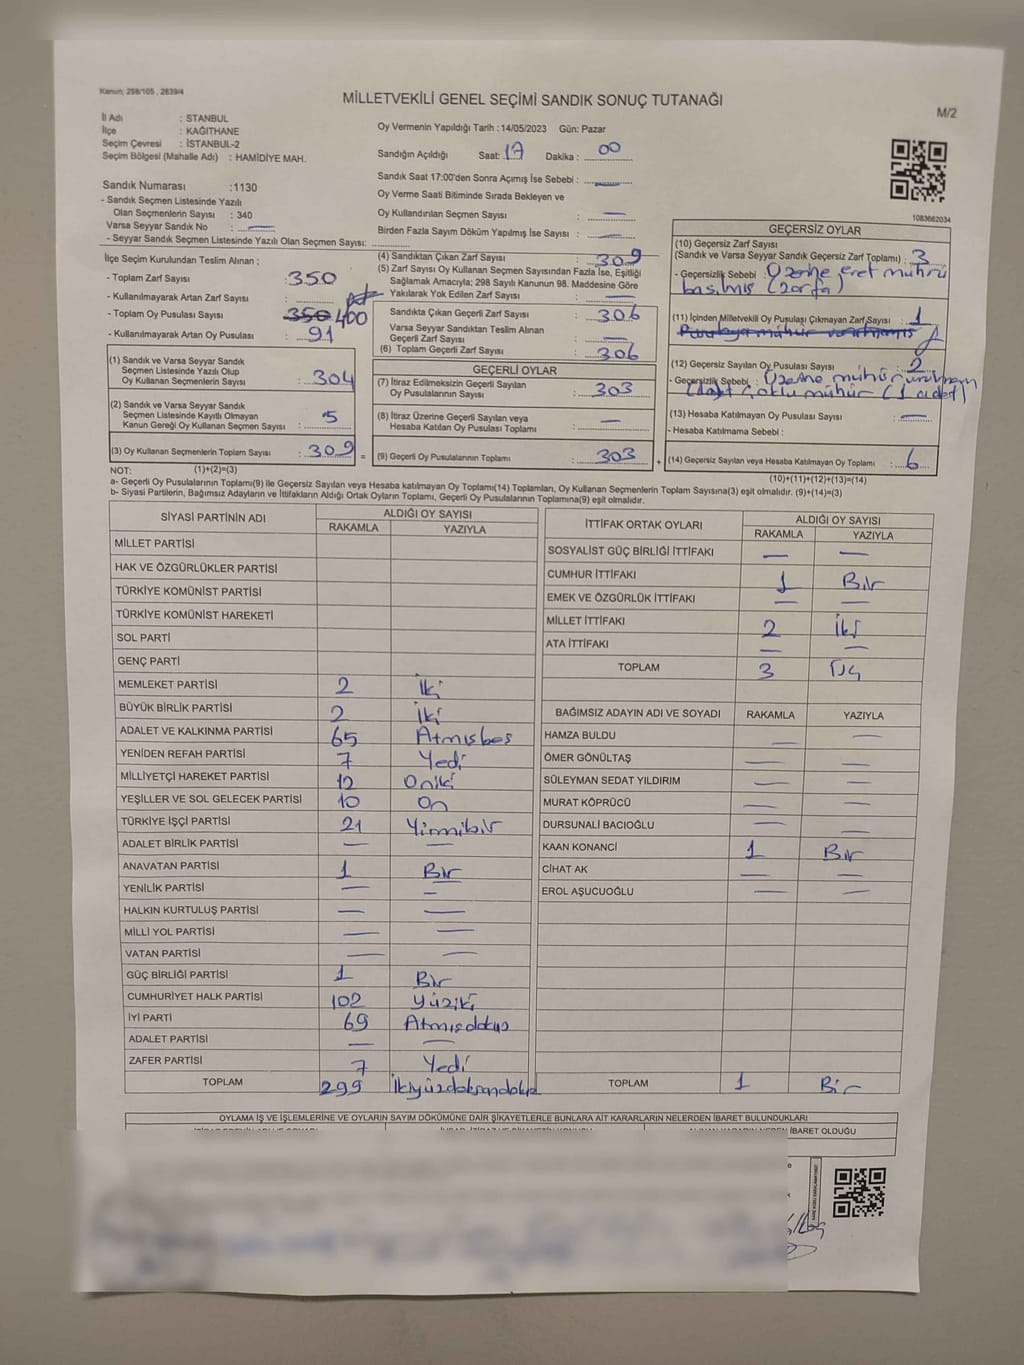 Kanun; 298/105 , 2839/4
MİLLETVEKİLİ GENEL SEÇİMİ SANDIK SONUÇ TUTANAĞI
M/2
İl Adı : STANBUL
İlçe : KAĞITHANE
Seçim Çevresi : İSTANBUL-2
Seçim Bölgesi (Mahalle Adı) : HAMİDİYE MAH.
Oy Vermenin Yapıldığı Tarih : 14/05/2023 Gün: Pazar
Sandığın Açıldığı Saat: 17 Dakika : 00
Sandık Saat 17:00'den Sonra Açımış İse Sebebi : —
Oy Verme Saati Bitiminde Sırada Bekleyen ve
Oy Kullandırılan Seçmen Sayısı : —
Birden Fazla Sayım Döküm Yapılmış İse Sayısı : —
1083662034
Sandık Numarası :1130
- Sandık Seçmen Listesinde Yazılı
Olan Seçmenlerin Sayısı : 340
Varsa Seyyar Sandık No : —
- Seyyar Sandık Seçmen Listesinde Yazılı Olan Seçmen Sayısı:
İlçe Seçim Kurulundan Teslim Alınan ;
- Toplam Zarf Sayısı : 350
- Kullanılmayarak Artan Zarf Sayısı :
- Toplam Oy Pusulası Sayısı : 350 400
- Kullanılmayarak Artan Oy Pusulası : 91
(1) Sandık ve Varsa Seyyar Sandık
Seçmen Listesinde Yazılı Olup
Oy Kullanan Seçmenlerin Sayısı : 304
(2) Sandık ve Varsa Seyyar Sandık
Seçmen Listesinde Kayıtlı Olmayan
Kanun Gereği Oy Kullanan Seçmen Sayısı : 5
(3) Oy Kullanan Seçmenlerin Toplam Sayısı : 309
(4) Sandıktan Çıkan Zarf Sayısı : 309
(5) Zarf Sayısı Oy Kullanan Seçmen Sayısından Fazla İse, Eşitliği
Sağlamak Amacıyla; 298 Sayılı Kanunun 98. Maddesine Göre
Yakılarak Yok Edilen Zarf Sayısı : —
Sandıkta Çıkan Geçerli Zarf Sayısı : 306
Varsa Seyyar Sandıktan Teslim Alınan
Geçerli Zarf Sayısı : —
(6) Toplam Geçerli Zarf Sayısı : 306
GEÇERLİ OYLAR
(7) İtiraz Edilmeksizin Geçerli Sayılan
Oy Pusulalarının Sayısı : 303
(8) İtiraz Üzerine Geçerli Sayılan veya
Hesaba Katılan Oy Pusulası Toplamı : —
= (9) Geçerli Oy Pusulalarının Toplamı : 303
GEÇERSİZ OYLAR
(10) Geçersiz Zarf Sayısı
(Sandık ve Varsa Seyyar Sandık Geçersiz Zarf Toplamı) : 3
- Geçersizlik Sebebi : Üzerine evet mührü
basılmış (zarfa)
(11) İçinden Milletvekili Oy Pusulası Çıkmayan Zarf Sayısı : 1
(12) Geçersiz Sayılan Oy Pusulası Sayısı : 2
- Geçersizlik Sebebi : Üzerine mühür
çoklu mühür (1 adet)
(13) Hesaba Katılmayan Oy Pusulası Sayısı : —
- Hesaba Katılmama Sebebi :
+ (14) Geçersiz Sayılan veya Hesaba Katılmayan Oy Toplamı : 6
NOT: (1)+(2)=(3)
(10)+(11)+(12)+(13)=(14)
a- Geçerli Oy Pusulalarının Toplamı(9) ile Geçersiz Sayılan veya Hesaba katılmayan Oy Toplamı(14) Toplamları, Oy Kullanan Seçmenlerin Toplam Sayısına(3) eşit olmalıdır. (9)+(14)=(3)
b- Siyasi Partilerin, Bağımsız Adayların ve İttifakların Aldığı Ortak Oyların Toplamı, Geçerli Oy Pusulalarının Toplamına(9) eşit olmalıdır.
SİYASİ PARTİNİN ADI ALDIĞI OY SAYISI
RAKAMLA YAZIYLA
MİLLET PARTİSİ
HAK VE ÖZGÜRLÜKLER PARTİSİ
TÜRKİYE KOMÜNİST PARTİSİ
TÜRKİYE KOMÜNİST HAREKETİ
SOL PARTİ
GENÇ PARTİ
MEMLEKET PARTİSİ 2 İki
BÜYÜK BİRLİK PARTİSİ 2 İki
ADALET VE KALKINMA PARTİSİ 65 Atmışbeş
YENİDEN REFAH PARTİSİ 7 Yedi
MİLLİYETÇİ HAREKET PARTİSİ 12 Oniki
YEŞİLLER VE SOL GELECEK PARTİSİ 10 On
TÜRKİYE İŞÇİ PARTİSİ 21 Yirmibir
ADALET BİRLİK PARTİSİ — —
ANAVATAN PARTİSİ 1 Bir
YENİLİK PARTİSİ — —
HALKIN KURTULUŞ PARTİSİ — —
MİLLİ YOL PARTİSİ — —
VATAN PARTİSİ — —
GÜÇ BİRLİĞİ PARTİSİ 1 Bir
CUMHURİYET HALK PARTİSİ 102 Yüziki
İYİ PARTİ 69 Atmışdokuz
ADALET PARTİSİ — —
ZAFER PARTİSİ 7 Yedi
TOPLAM 299
İTTİFAK ORTAK OYLARI ALDIĞI OY SAYISI
RAKAMLA YAZIYLA
SOSYALİST GÜÇ BİRLİĞİ İTTİFAKI — —
CUMHUR İTTİFAKI 1 Bir
EMEK VE ÖZGÜRLÜK İTTİFAKI — —
MİLLET İTTİFAKI 2 İki
ATA İTTİFAKI — —
TOPLAM 3 Üç
BAĞIMSIZ ADAYIN ADI VE SOYADI RAKAMLA YAZIYLA
HAMZA BULDU — —
ÖMER GÖNÜLTAŞ — —
SÜLEYMAN SEDAT YILDIRIM — —
MURAT KÖPRÜCÜ — —
DURSUNALİ BACIOĞLU — —
KAAN KONANCİ 1 Bir
CİHAT AK — —
EROL AŞUCUOĞLU — —
TOPLAM 1 Bir
OYLAMA İŞ VE İŞLEMLERİNE VE OYLARIN SAYIM DÖKÜMÜNE DAİR ŞİKAYETLERLE BUNLARA AİT KARARLARIN NELERDEN İBARET BULUNDUKLARI
İBARET OLDUĞU